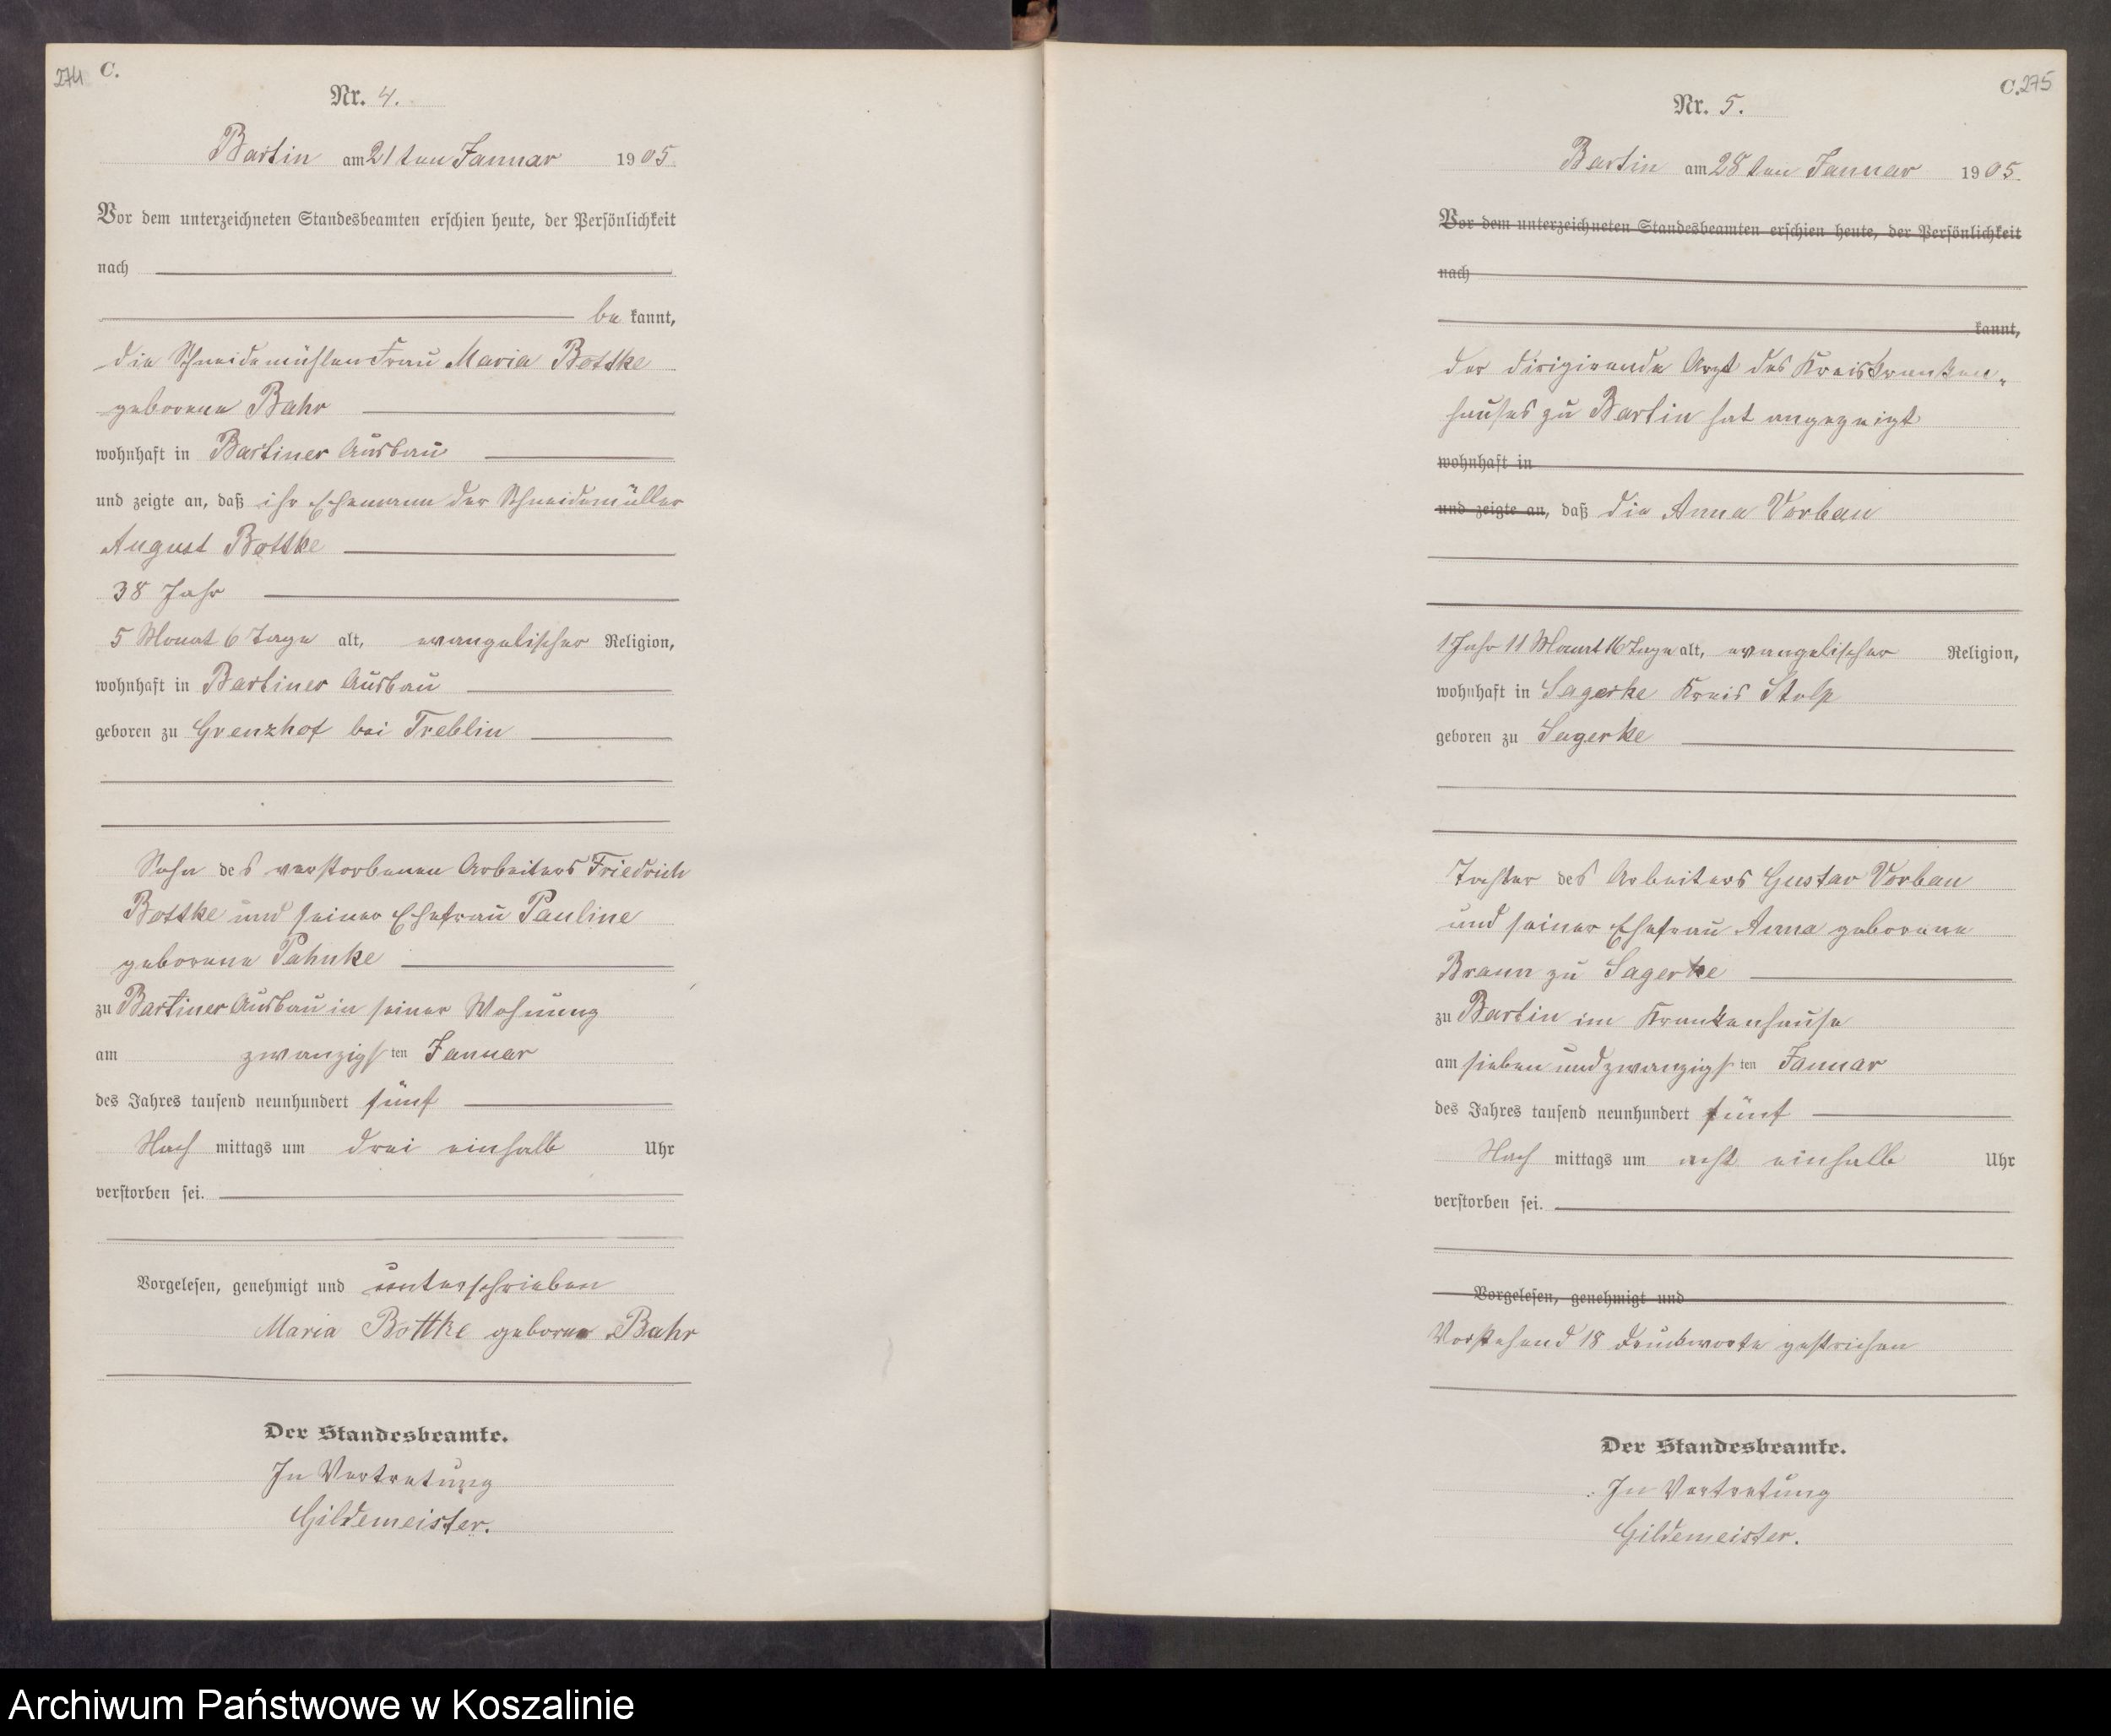 274 C.
Nr. 4.
Bartin am 21ten Januar 1905
Vor dem unterzeichneten Standesbeamten erschien heute, der Persönlichkeit
nach
be kannt,
die Schneidemühlen Frau Maria Bottke
geborene Bahr
wohnhaft in Bartiner Ausbau
und zeigte an, daß ihr Ehemann der Schneidemüller
August Bottke
38 Jahr
5 Monat 6 Tage alt, evangelischer Religion,
wohnhaft in Bartiner Ausbau
geboren zu Grenzhof bei Treblin
Sohn des verstorbenen Arbeiters Friedrich
Bottke und seiner Ehefrau Pauline
geborene Pahnke
zu Bartiner Ausbau in seiner Wohnung
am zwanzigsten Januar
des Jahres tausend neunhundert fünf
Nach mittags um drei einhalb Uhr
verstorben sei.
Vorgelesen, genehmigt und unterschrieben
Maria Bottke geboren Bahr
Der Standesbeamte.
In Vertretung
Gildemeister.
C. 275
Nr. 5.
Bartin am 28ten Januar 1905.
Vor dem unterzeichneten Standesbeamten erschien heute, der Persönlichkeit
nach
kannt,
der dirigirende Arzt des Kreiskranken-
hauses zu Bartin hat angezeigt
wohnhaft in
und zeigte an, daß die Anna Vorbau
1 Jahr 11 Monat 16 Tage alt, evangelischer Religion,
wohnhaft in Sagerke Kreis Stolp
geboren zu Sagerke
Tochter des Arbeiters Gustav Vorbau
und seiner Ehefrau Anna geborene
Braun zu Sagerke
zu Bartin im Krankenhause
am sieben und zwanzigsten Januar
des Jahres tausend neunhundert fünf
Nach mittags um acht einhalb Uhr
verstorben sei.
Vorgelesen, genehmigt und
Vorstehend 18 Druckworte gestrichen
Der Standesbeamte.
In Vertretung
Gildemeister.
Archiwum Państwowe w Koszalinie